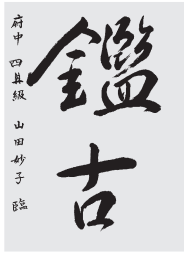 鑑古
府中 四段級 山田妙子 臨